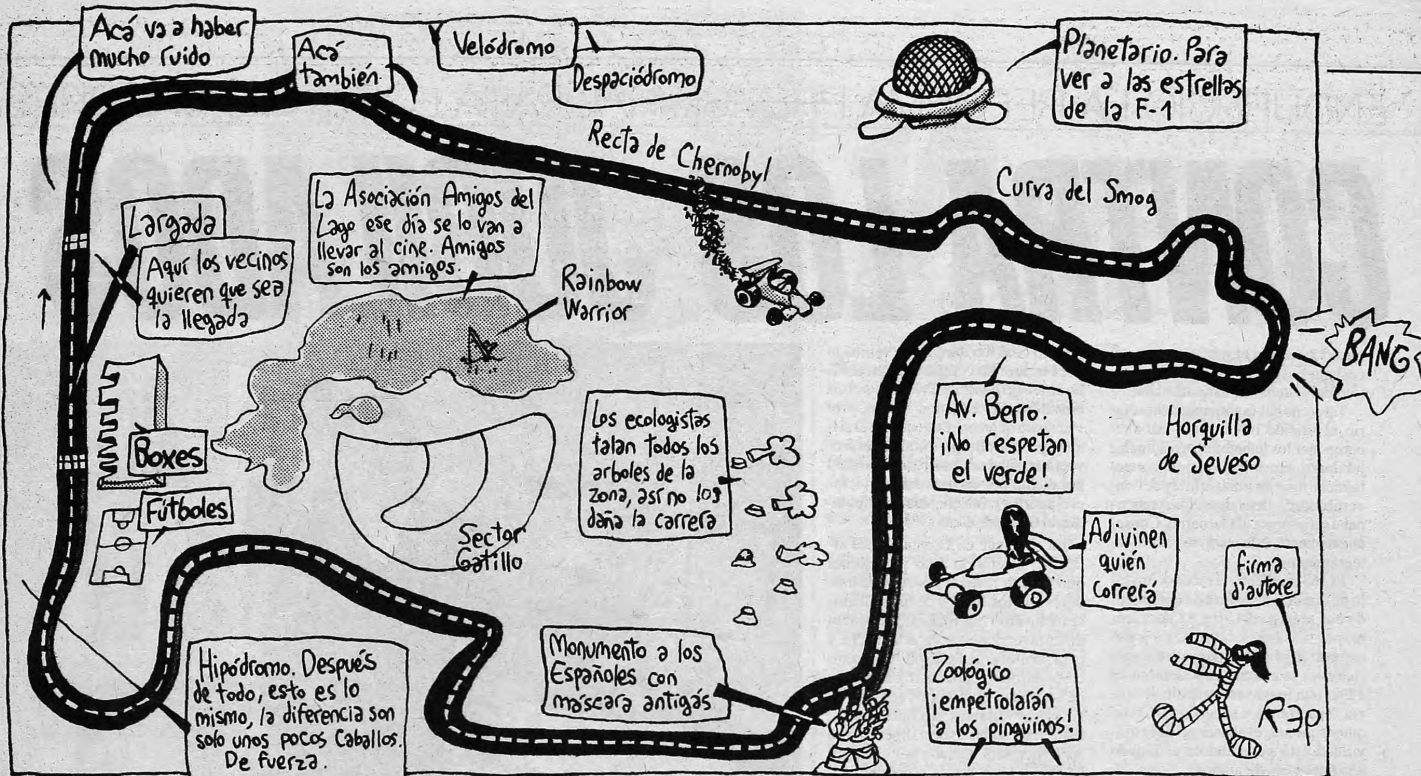 Acá va a haber
mucho ruido
Acá
también
Velódromo
Despaciódromo
Planetario. Para
ver a las estrellas
de la F-1
Recta de Chernobyl
Curva del Smog
La Asociación Amigos del
Lago ese día se lo van a
llevar al cine. Amigos
son los amigos.
Rainbow
Warrior
Largada
Aquí los vecinos
quieren que sea
la llegada
BANG
Boxes
Fútboles
Sector
Gatillo
Los ecologistas
talan todos los
arboles de la
zona, así no los
daña la carrera
Av. Berro.
¡No respetan
el verde!
Horquilla
de Seveso
Adivinen
quién
correrá
firma
d'autore
Rep
Hipódromo. Después
de todo, esto es lo
mismo, la diferencia son
solo unos pocos Caballos.
De fuerza.
Monumento a los
Españoles con
máscara antigás
Zoológico
¡empetrolarán
a los pingüinos!